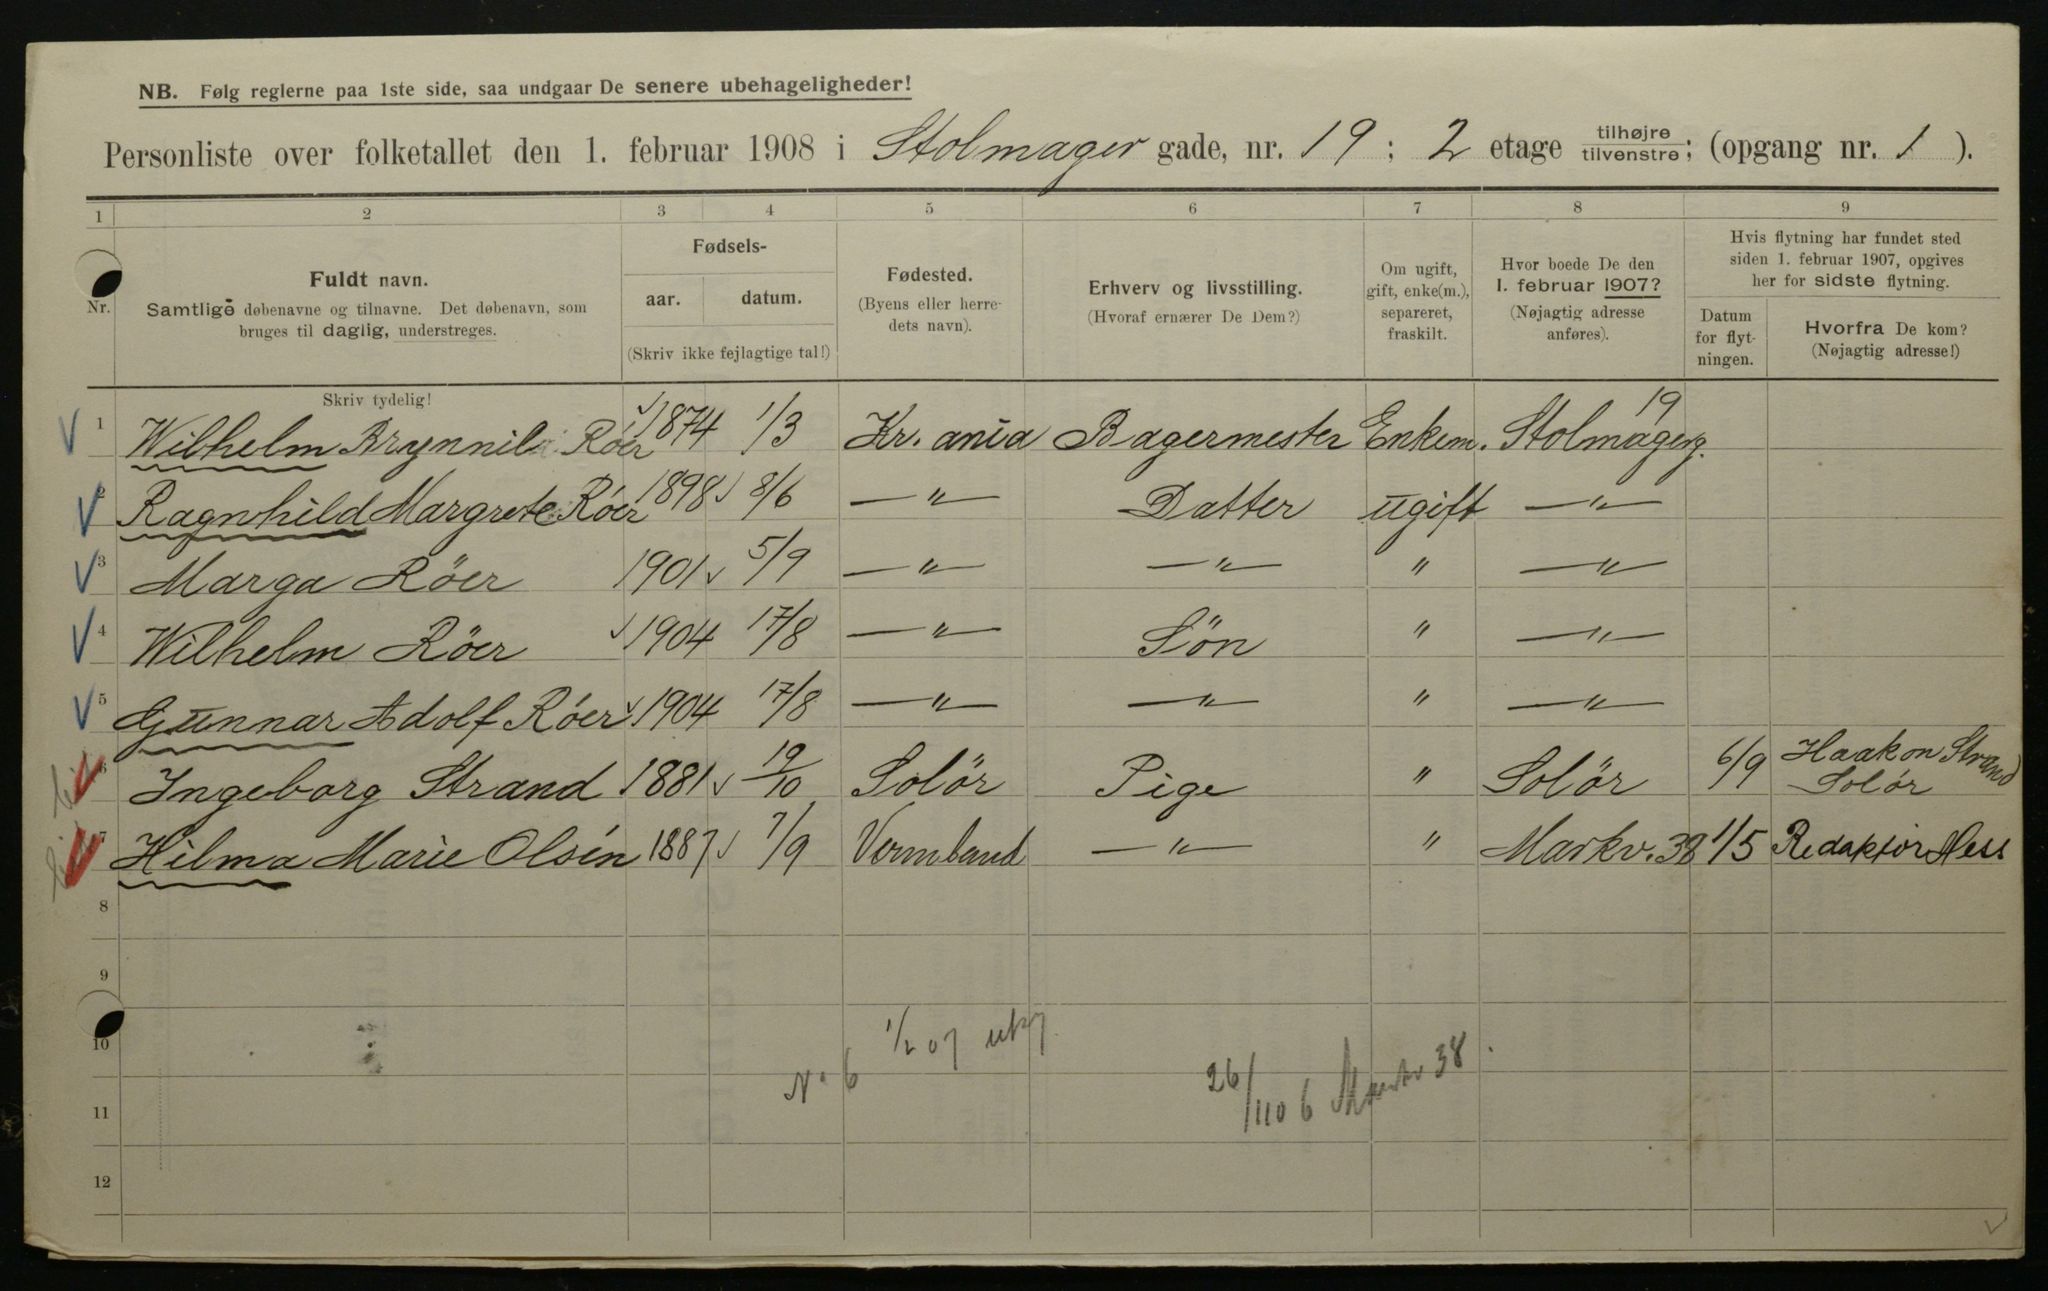 NB. Følg reglerne paa 1ste side, saa undgaar De senere ubehageligheder!
Personliste over folketallet den 1. februar 1908 i Stolmager gade, nr. 19; 2 etage tilhøjre/tilvenstre; (opgang nr. 1).
1 2 3 4 5 6 7 8 9
Nr.
Fuldt navn.
Samtlige døbenavne og tilnavne. Det døbenavn, som
bruges til daglig, understreges.
Fødsels-
aar. datum.
(Skriv ikke fejlagtige tal!)
Fødested.
(Byens eller herre-
dets navn).
Erhverv og livsstilling.
(Hvoraf ernærer De Dem?)
Om ugift,
gift, enke(m.),
separeret,
fraskilt.
Hvor boede De den
1. februar 1907?
(Nøjagtig adresse
anføres).
Hvis flytning har fundet sted
siden 1. februar 1907, opgives
her for sidste flytning.
Datum
for flyt-
ningen.
Hvorfra De kom?
(Nøjagtig adresse!)
Skriv tydelig!
1 Wilhelm Röer 1874 1/3 Kr. ania Bagermester Enkem. Stolmagerg. 19
2 Ragnhild Margrete Röer 1898 8/6 —"— Datter ugift —"—
3 Marga Röer 1901 5/9 —"— —"— " —"—
4 Wilhelm Röer 1904 17/8 —"— Sön " —"—
5 Gunnar Adolf Röer 1904 17/8 —"— —"— " —"—
6 Ingeborg Strand 1881 19/10 Solör Pige " Solör 6/9 Haakon Strand Solör
7 Hilma Marie Olsen 1887 7/9 —"— " Markv. 38 1/5 Redaktör
8
9
10
11
12
No 6 1/2 07
38